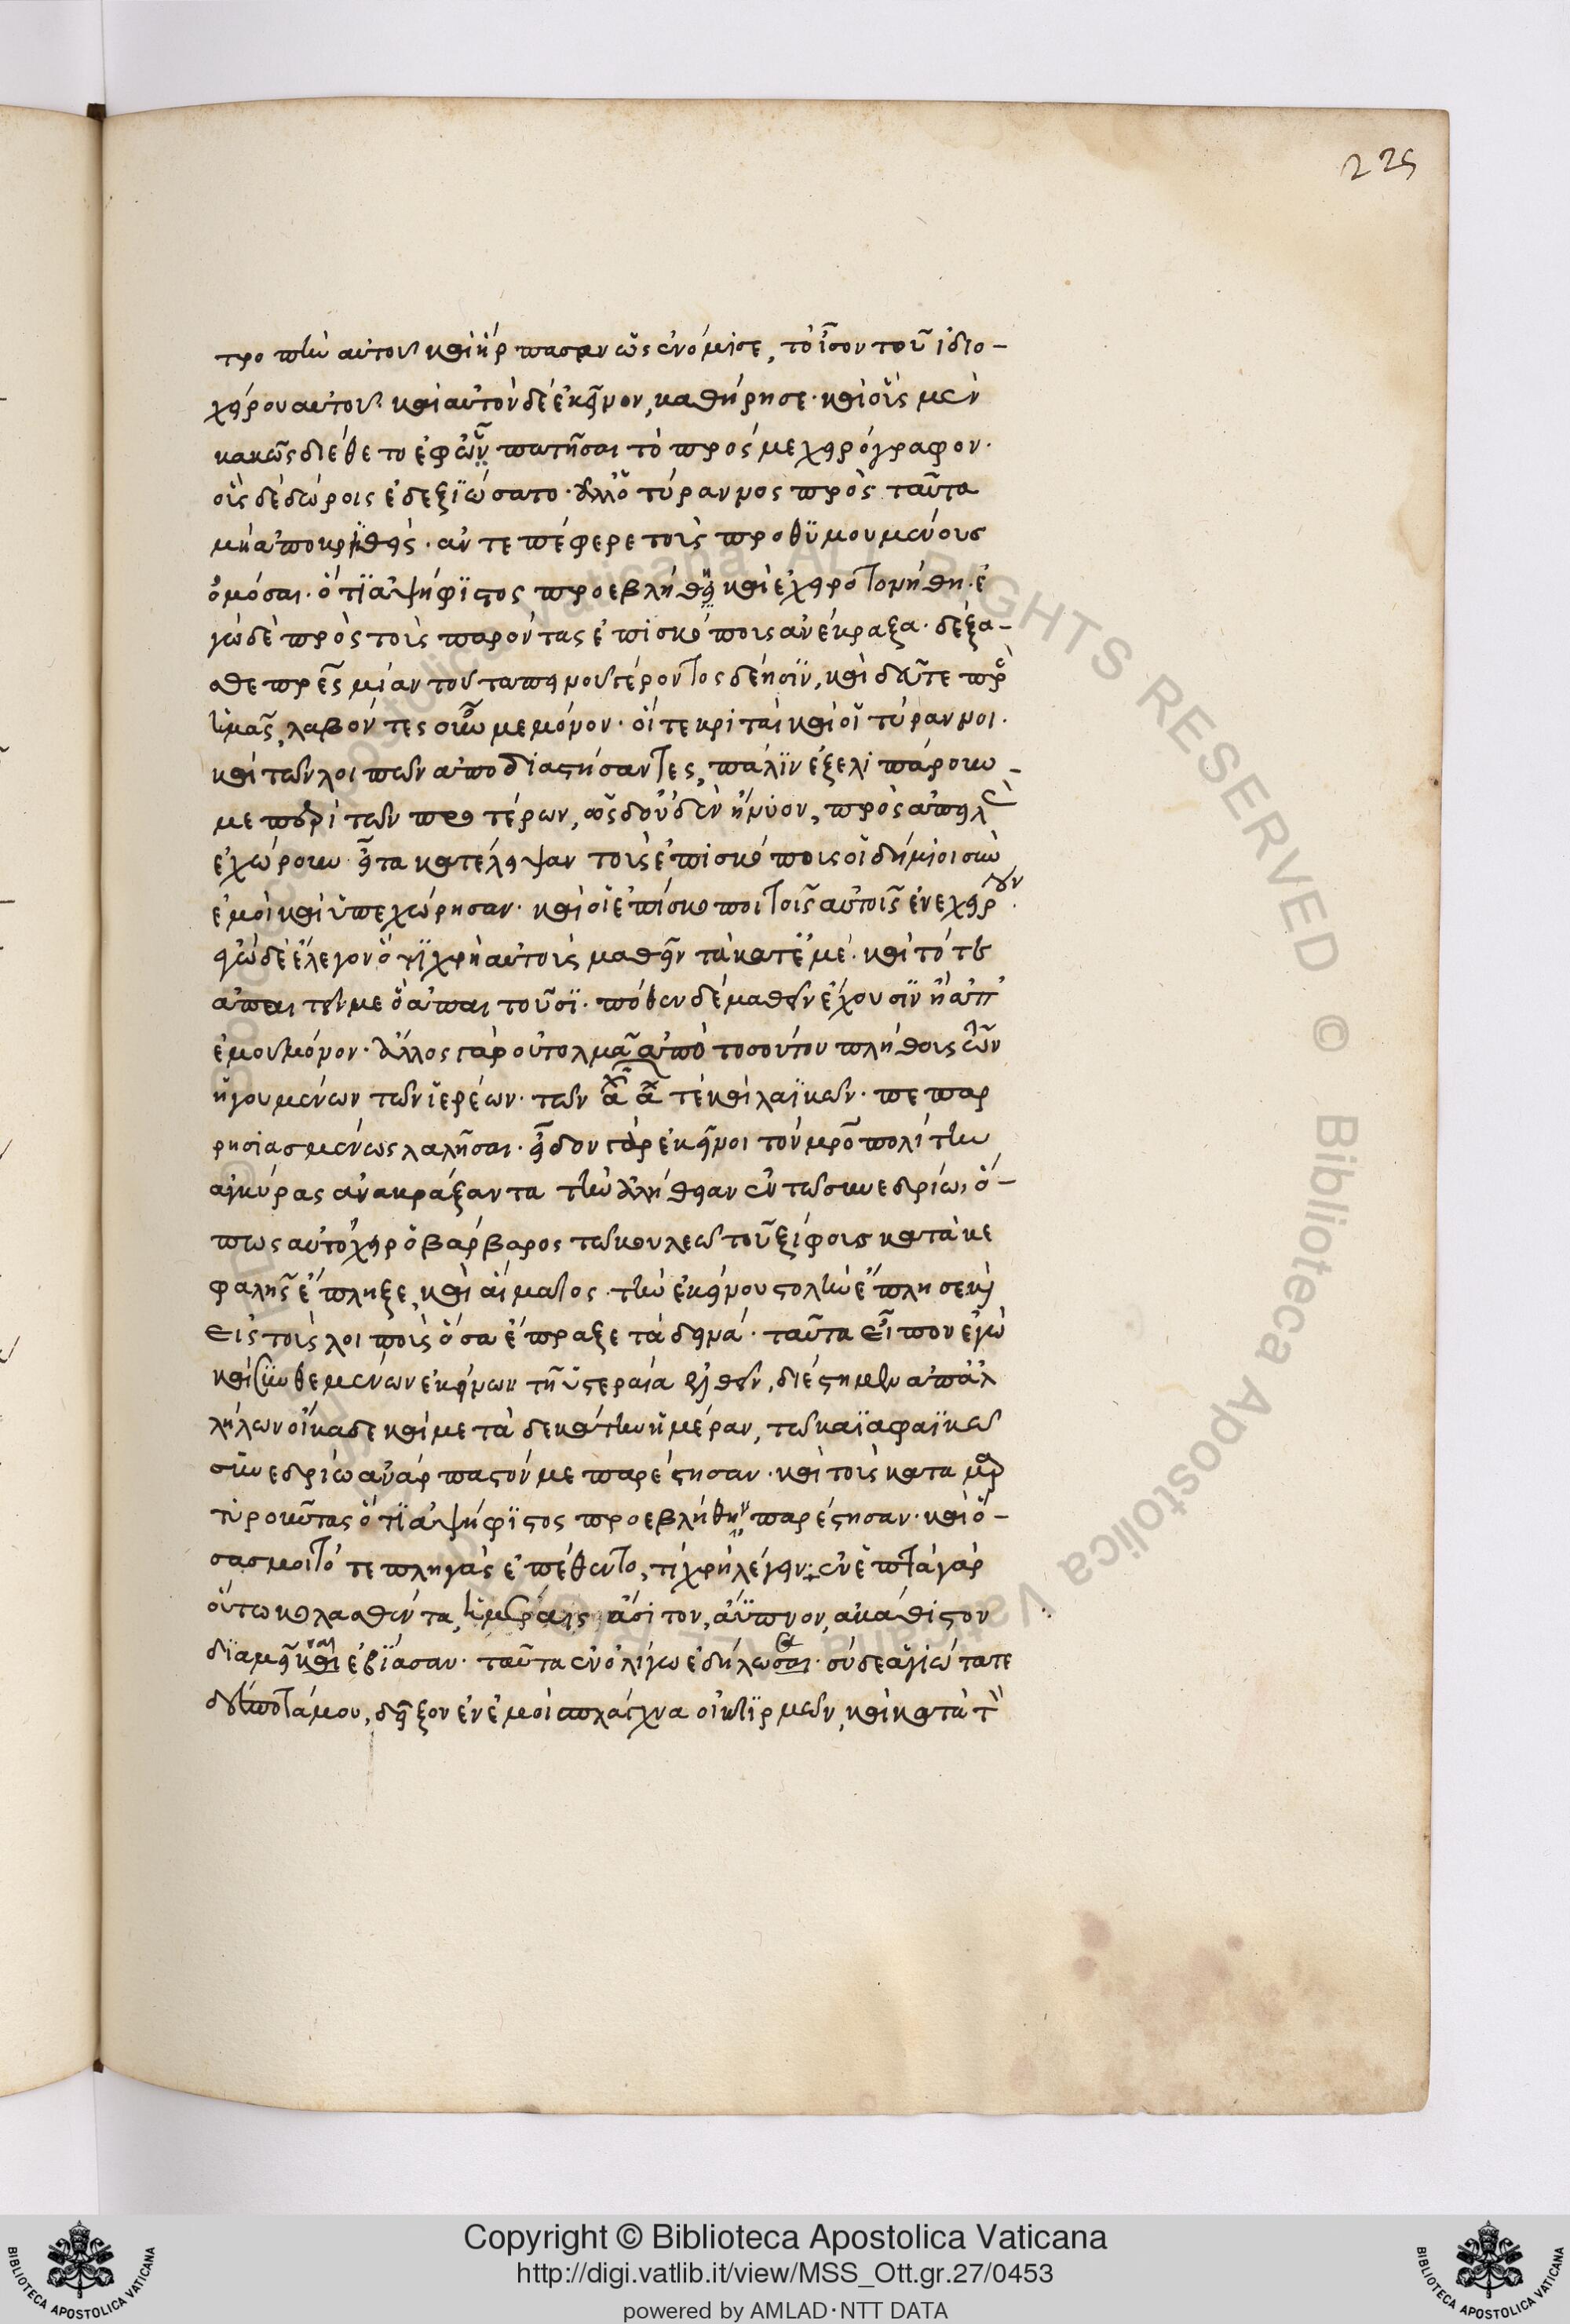 225
τροπὴν αὐτοῦ καὶ ἥρπασεν ὡς ἐνόμισε, τὸ ἶσον τοῦ ἰδιο-
χείρου αὐτοῦ· καὶ αὐτὸν δὲ ἐκεῖνον, καθήρησε· καὶ οὓς μὲν
κακῶς διέθετο ἐφ' ὧν πατῆσαι τὸ πρός με χειρόγραφον·
οὓς δὲ δώροις ἐδεξϊώσατο· ἀλλ' ὁ τύραννος πρὸς ταῦτα
μὴ ἀποκριθεὶς· ἀντεπέφερε τοὺς προθϋμουμένους
ὀμόσαι· ὅτϊ ἀψήφϊστος προεβλήθη καὶ ἐχειροτονήθη· ἐ
γὼ δὲ πρὸς τοὺς παρόντας ἐπισκόπους ἀνέκραξα· δέξα-
σθε πρες μίαν τοῦ ταπεινοῦ γέροντος δέησϊν, καὶ δεῦτε πρὸ
ὑμᾶς, λαβόντες σὺν ἐμὲ μόνον· οἵ τε κριταὶ καὶ οἱ τύραννοι·
καὶ τῶν λοιπῶν ἀποδιαστήσαντες, πάλϊν ἐξελιπάρουν-
με περὶ τῶν προτέρων, ὡς δ' οὐδὲν ἤνυον, πρὸς ἀπειλὰς
ἐχώρουν· εἶτα κατέλειψαν τοὺς ἐπισκόπους οἱ δήμιοι σὺν
ἐμοὶ καὶ ὑπεχώρησαν· καὶ οἱ ἐπίσκοποι τοῖς αὐτοῖς ἐνεχείρουν·
ἐγὼ δὲ ἔλεγον ὅτϊ χρὴ αὐτοὺς μαθεῖν τὰ κατ' ἐμέ· καὶ τότε
ἀπαιτεῖν με ὃ ἀπαιτοῦσϊ· πόθεν δὲ μαθεῖν ἔχουσϊν ἢ ἀπ'
ἐμοῦ μόνον· ἄλλος γὰρ οὐ τολμᾶ ἀπὸ τοσούτου πλήθους τῶν
ἡγουμένων τῶν ἱερέων· τῶν τε καὶ λαϊκῶν· πεπαρ
ρησιασμένως λαλῆσαι· εἶδον γὰρ ἐκεῖνοι τὸν μροπολίτην
ἀγκύρας ἀνακράξαντα τὴν ἀλήθειαν ἐν τῶ συνεδρίω, ὅ-
πως αὐτόχειρ ὁ βάρβαρος τῶ κουλεῶ τοῦ ξίφους κατὰ κε
φαλῆς ἔπληξε, καὶ αἵματος τὴν ἐκείνου στολὴν ἔπλησε καὶ
εἰς τοὺς λοιποὺς ὅσα ἔπραξε τὰ δεινά· ταῦτα εἶπον ἐγὼ
καὶ συνθεμένων ἐκείνων τῆ ὑστεραία ἐλθεῖν, διέστημεν ἀπ' ἀλ
λήλων οἴκαδε καὶ μετὰ δεκάτην ἡμέραν, τῶ καϊαφαϊκῶ
συνεδρίω ἀνάρπαστόν με παρέστησαν· καὶ τοὺς καταμαρ
τυροῦντας ὅτϊ ἀψήφϊστος προεβλήθην παρέστησαν· καὶ ὅ-
σας μοι τότε πληγὰς ἐπέθεντο, τί χρὴ λέγειν; ἐν ἑπτὰ γὰρ
οὕτω κολασθέντα, ἡμέραις ἄσιτον, ἄϋπνον, ἀκάθιστον
διαμεῖναι ἐβιάσαν· ταῦτα ἐν ὀλίγω ἐδήλωσα· σὺ δὲ ἁγιώτατε
δέσποτά μου, δεῖξον ἐν ἐμοὶ σπλάγχνα οἰκτϊρμῶν, καὶ κατὰ τ
Copyright © Biblioteca Apostolica Vaticana
http://digi.vatlib.it/view/MSS_Ott.gr.27/0453
powered by AMLAD·NTT DATA
BIBLIOTECA APOSTOLICA VATICANA
BIBLIOTECA APOSTOLICA VATICANA